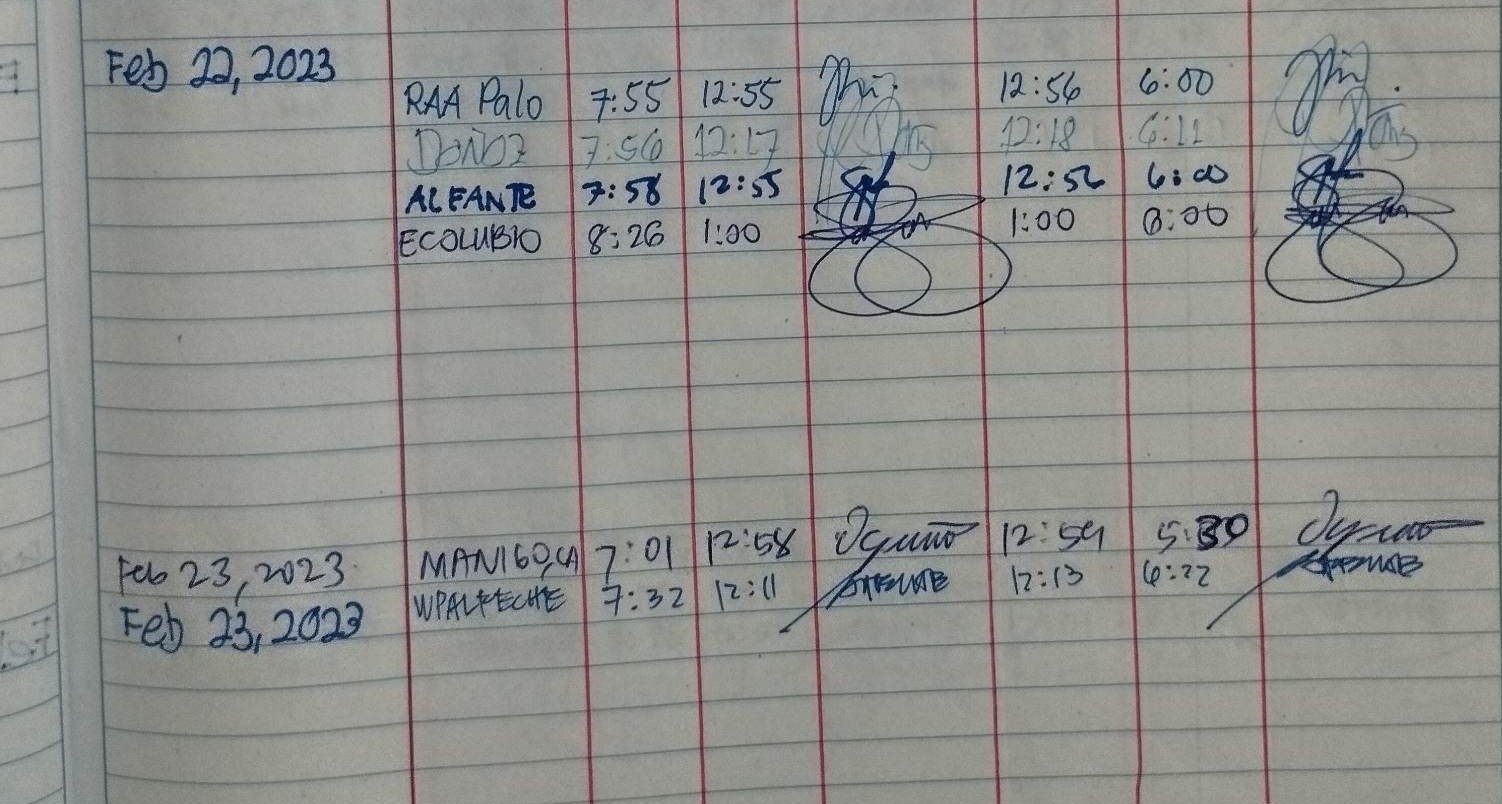 Feb 22, 2023
RAA Palo 7:55 12:55 12:56 6:00
7:56 12:17 12:18 6:11
ALFANTE 7:58 12:55 12:56 6:00
ECOLUBIO 8:26 1:00 1:00 6:00
Feb 23, 2023 MANIGO, CA 7:01 12:58 12:59 5:30
Feb 23, 2023 WPALPECHE 7:32 12:11 12:13 6:22